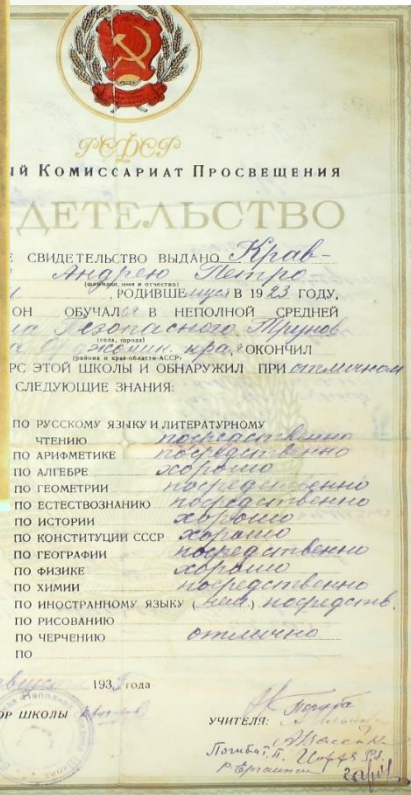 РСФСР
ый Комиссариат Просвещения
ДЕТЕЛЬСТВО
Е СВИДЕТЕЛЬСТВО ВЫДАНО Крав-
Андрею Петро-
(фамилия, имя и отчество)
, РОДИВШЕмуся В 1923 ГОДУ,
ОН ОБУЧАЛся В НЕПОЛНОЙ СРЕДНЕЙ
ла Безопасного Трунов
(села, города)
а Орджоник. края ОКОНЧИЛ
(района и края-области-АССР)
РС ЭТОЙ ШКОЛЫ И ОБНАРУЖИЛ ПРИ отличном
СЛЕДУЮЩИЕ ЗНАНИЯ:
ПО РУССКОМУ ЯЗЫКУ И ЛИТЕРАТУРНОМУ
ЧТЕНИЮ посредственно
ПО АРИФМЕТИКЕ посредственно
ПО АЛГЕБРЕ хорошо
ПО ГЕОМЕТРИИ посредственно
ПО ЕСТЕСТВОЗНАНИЮ посредственно
ПО ИСТОРИИ хорошо
ПО КОНСТИТУЦИИ СССР хорошо
ПО ГЕОГРАФИИ посредственно
ПО ФИЗИКЕ хорошо
ПО ХИМИИ посредственно
ПО ИНОСТРАННОМУ ЯЗЫКУ (нем.) посредств.
ПО РИСОВАНИЮ
ПО ЧЕРЧЕНИЮ отлично
ПО
193 года
ОР ШКОЛЫ
УЧИТЕЛЯ: